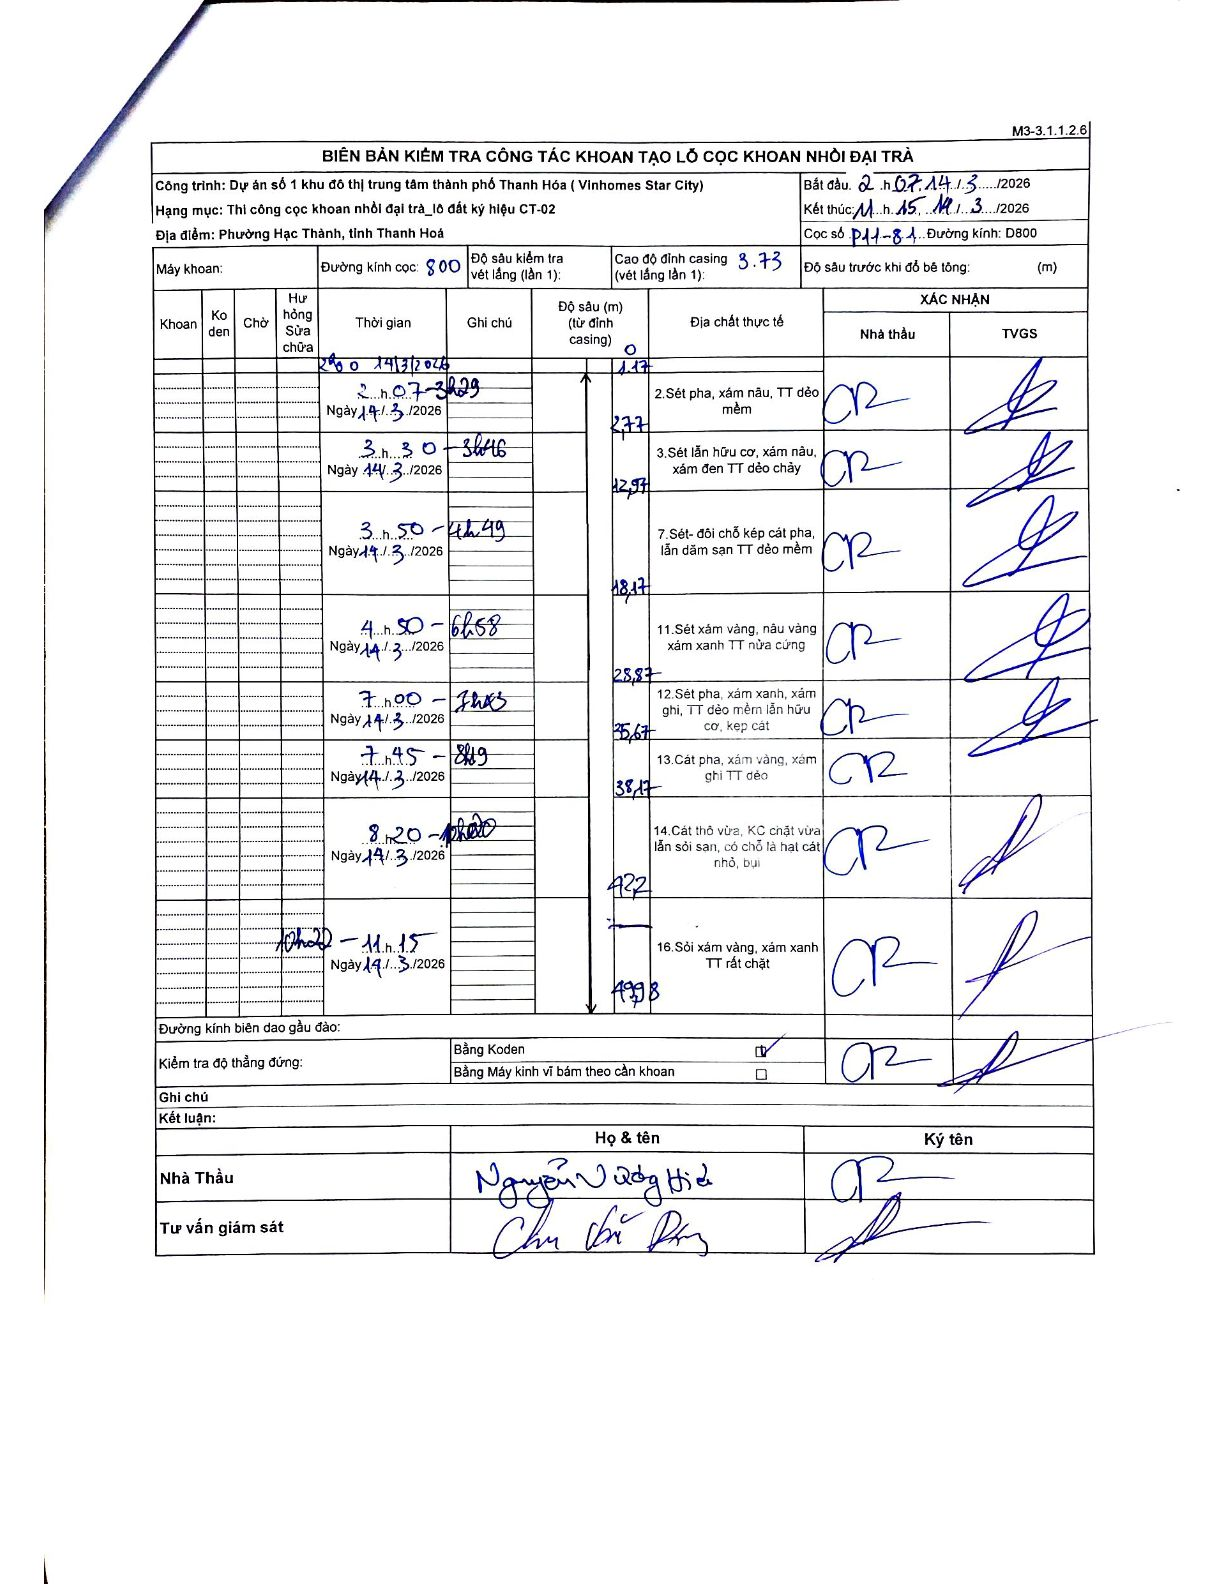 M3-3.1.1.2.6
BIÊN BẢN KIỂM TRA CÔNG TÁC KHOAN TẠO LỖ CỌC KHOAN NHỒI ĐẠI TRÀ
Công trình: Dự án số 1 khu đô thị trung tâm thành phố Thanh Hóa ( Vinhomes Star City)
Bắt đầu. 2 .h 07. 14 ./. 3 ...../2026
Hạng mục: Thi công cọc khoan nhồi đại trà_lô đất ký hiệu CT-02
Kết thúc: 11 ..h. 15, .14 ./... 3 ..../2026
Địa điểm: Phường Hạc Thành, tỉnh Thanh Hoá
Cọc số P11-81..Đường kính: D800
Máy khoan:
Đường kính cọc: 800
Độ sâu kiểm tra
vét lắng (lần 1):
Cao độ đỉnh casing 3.73
(vét lắng lần 1):
Độ sâu trước khi đổ bê tông: (m)
Khoan
Ko
den
Chờ
Hư
hỏng
Sửa
chữa
Thời gian
Ghi chú
Độ sâu (m)
(từ đỉnh
casing)
0
Địa chất thực tế
XÁC NHẬN
Nhà thầu
TVGS
14/3/2026
1.17
2...h.07-3h29
Ngày 14./..3../2026
2,77
2.Sét pha, xám nâu, TT dẻo
mềm
3..h...30-3h46
Ngày 14/..3.../2026
12,97
3.Sét lẫn hữu cơ, xám nâu,
xám đen TT dẻo chảy
3..h..50-4h49
Ngày 14./..3../2026
18,17
7.Sét- đôi chỗ kép cát pha,
lẫn dăm sạn TT dẻo mềm
4...h.50-6h58
Ngày 14./..3.../2026
28,87
11.Sét xám vàng, nâu vàng
xám xanh TT nửa cứng
7...h00-
Ngày 14./..3.../2026
35,67
12.Sét pha, xám xanh, xám
ghi, TT dẻo mềm lẫn hữu
cơ, kẹp cát
7...h.45-8h19
Ngày 14./..3.../2026
38,17
13.Cát pha, xám vàng, xám
ghi TT dẻo
8.h20-10h20
Ngày 14/..3../2026
42,2
14.Cát thô vừa, KC chặt vừa
lẫn sỏi sạn, có chỗ là hạt cát
nhỏ, bụi
10h22-11.h.15
Ngày 14./...3../2026
16.Sỏi xám vàng, xám xanh
TT rất chặt
Đường kính biên dao gầu đào:
Kiểm tra độ thẳng đứng:
Bằng Koden
Bằng Máy kinh vĩ bám theo cần khoan
Ghi chú
Kết luận:
Họ & tên
Ký tên
Nhà Thầu
Nguyễn Vương
Tư vấn giám sát
Chu